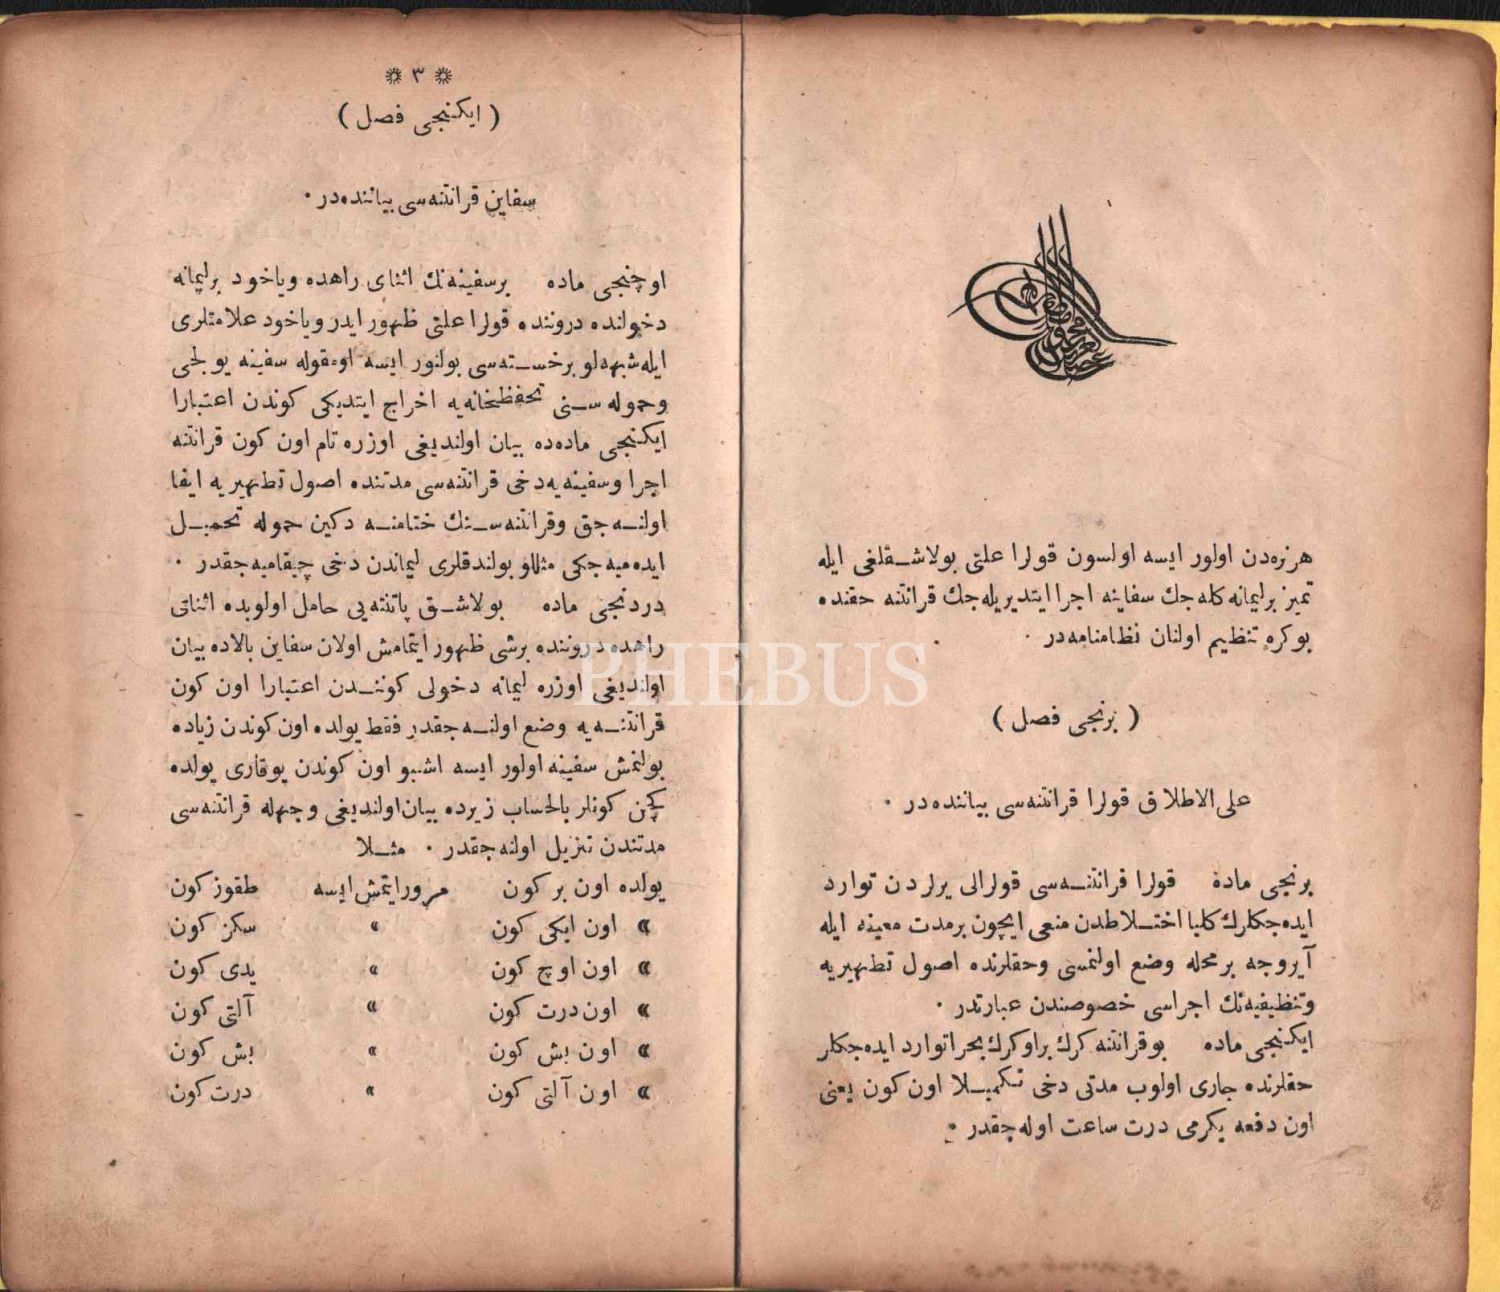 هر نره‌دن اولور ایسه اولسون قولرا علتی بولاشقلغی ایله
تمیز بر لیمانه کله‌جك سفاینه اجرا ایتدیریله‌جك قرانتنه حقنده
بو کره تنظیم اولنان نظامنامه‌در ·
( برنجی فصل )
علی الاطلاق قولرا قرانتنه‌سی بیاننده‌در ·
برنجی ماده قولرا قرانتنه‌سی قولرالی یرلردن توارد
ایده‌جکلرك کلیا اختلاطدن منعی ایچون بر مدت معینه ایله
آیروجه بر محله وضع اولنمسی وحقلرنده اصول تطهیریه
وتنظیفیه‌نك اجراسی خصوصندن عبارتدر ·
ایکنجی ماده بو قرانتنه کرك برا وکرك بحرا توارد ایده‌جکلر
حقلرنده جاری اولوب مدتی دخی تکمیلا اون کون یعنی
اون دفعه یکرمی درت ساعت اوله‌جقدر ·
٣
( ایکنجی فصل )
سفاین قرانتنه‌سی بیاننده‌در ·
اوچنجی ماده بر سفینه‌نك اثنای راهده ویاخود بر لیمانه
دخولنده دروننده قولرا علتی ظهور ایدر ویاخود علامتلری
ایله شبهه‌لو بر خسته‌سی بولنور ایسه اومقوله سفینه یولجی
وحموله‌سنی تحفظخانه‌یه اخراج ایتدیکی کوندن اعتبارا
ایکنجی ماده‌ده بیان اولندیغی اوزره تام اون کون قرانتنه
اجرا وسفینه‌یه دخی قرانتنه‌سی مدتنده اصول تطهیریه ایفا
اولنه‌جق وقرانتنه‌سنك ختامنه دکین حموله تحمیل
ایده‌میه‌جکی مثللو بولندقلری لیماندن دخی چیقامیه‌جقدر ·
دردنجی ماده بولاشق پاتنته‌یی حامل اولوبده اثنائی
راهده دروننده برشی ظهور ایتمامش اولان سفاین بالاده بیان
اولندیغی اوزره لیمانه دخولی کونندن اعتبارا اون کون
قرانتنه‌یه وضع اولنه‌جقدر فقط یولده اون کوندن زیاده
بولنمش سفینه اولور ایسه اشبو اون کوندن یوقاری یولده
کچن کونلر بالحساب زیرده بیان اولندیغی وجهله قرانتنه‌سی
مدتندن تنزیل اولنه‌جقدر · مثلا
یولده اون بر کون مرور ایتمش ایسه طقوز کون
» اون ایکی کون » سکز کون
» اون اوچ کون » یدی کون
» اون درت کون » آلتی کون
» اون بش کون » بش کون
» اون آلتی کون » درت کون
PHEBUS